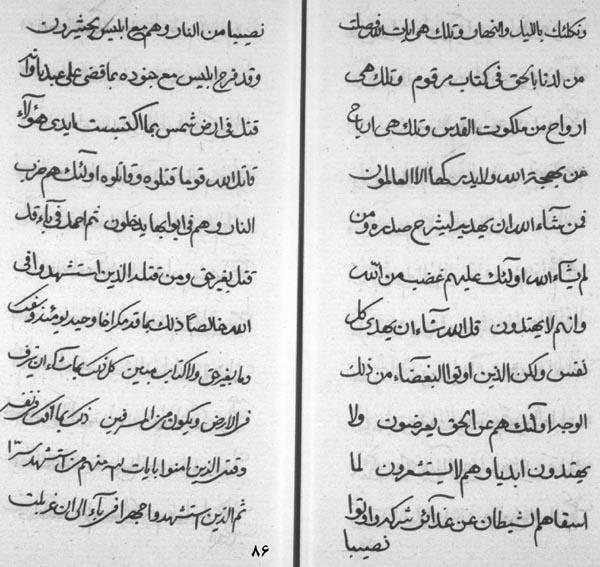 وتكلئك بالليل والنهار وتلك هی ايات الله فصلت
من لدنا بالحق فی كتاب مرقوم وتلك هی
ارواح من ملكوت القدس وتلك هی ارياح
من بهجة الله ولا يدركها الا العالمون
فمن يشآء الله ان يهديه ليشرح صدره ومن
لم يشآء الله اولئك عليهم غضب من الله
وانهم لا يهتدون قل الله يشآء ان يهدی كل
نفس ولكن الذين اوتوا البغضآء من ذلك
الوجه اولئك هم عن الحق يعرضون ولا
يهتدون ابديا وهم لا يستشعرون لما
اسقاهم الشيطان عن شركه واوتوا
نصيبا
نصيبا من النار وهم مع ابليس يحشرون
وقد فرح ابليس مع جنوده بما قضی علی عبد
قتل فی ارض شمس بما اكتسبت ايدی هؤلآء
قاتل الله قوما قتلوه وقاتلوه اولئك هم حزب
النار وهم فی ابوابها يدخلون ثم احمد فی بآء قد
قتل بغير حق ومن قبله الذين استشهدوا فی
الله خالصا ذلك بما قدمكرا
وما بغير حق ولا كتاب مبين كل ذلك بما شآء ان
فی الارض ويكون من المسرفين ذلك بما
وقتل الذين امنوا بايات الله منهم من استشهد سرا
ثم الذين استشهدوا جهرا فی بآء الی ان
٨۶